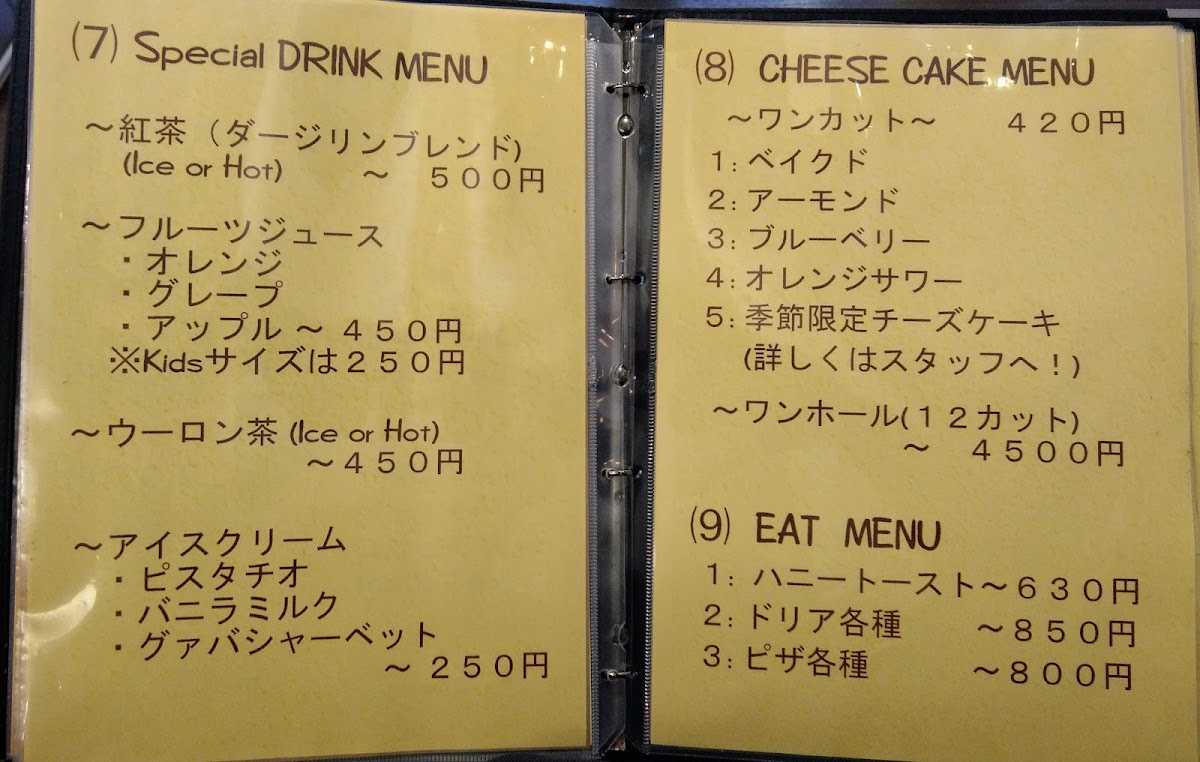 (7) Special DRINK MENU
～紅茶（ダージリンブレンド)
(Ice or Hot) ～ ５００円
～フルーツジュース
・オレンジ
・グレープ
・アップル ～ ４５０円
※Kidsサイズは２５０円
～ウーロン茶 (Ice or Hot)
～４５０円
～アイスクリーム
・ピスタチオ
・バニラミルク
・グァバシャーベット
～ ２５０円
(8) CHEESE CAKE MENU
～ワンカット～ ４２０円
１:ベイクド
２:アーモンド
３:ブルーベリー
４:オレンジサワー
５:季節限定チーズケーキ
(詳しくはスタッフへ！)
～ワンホール(１２カット)
～ ４５００円
(9) EAT MENU
１: ハニートースト～６３０円
２:ドリア各種 ～８５０円
３:ピザ各種 ～８００円